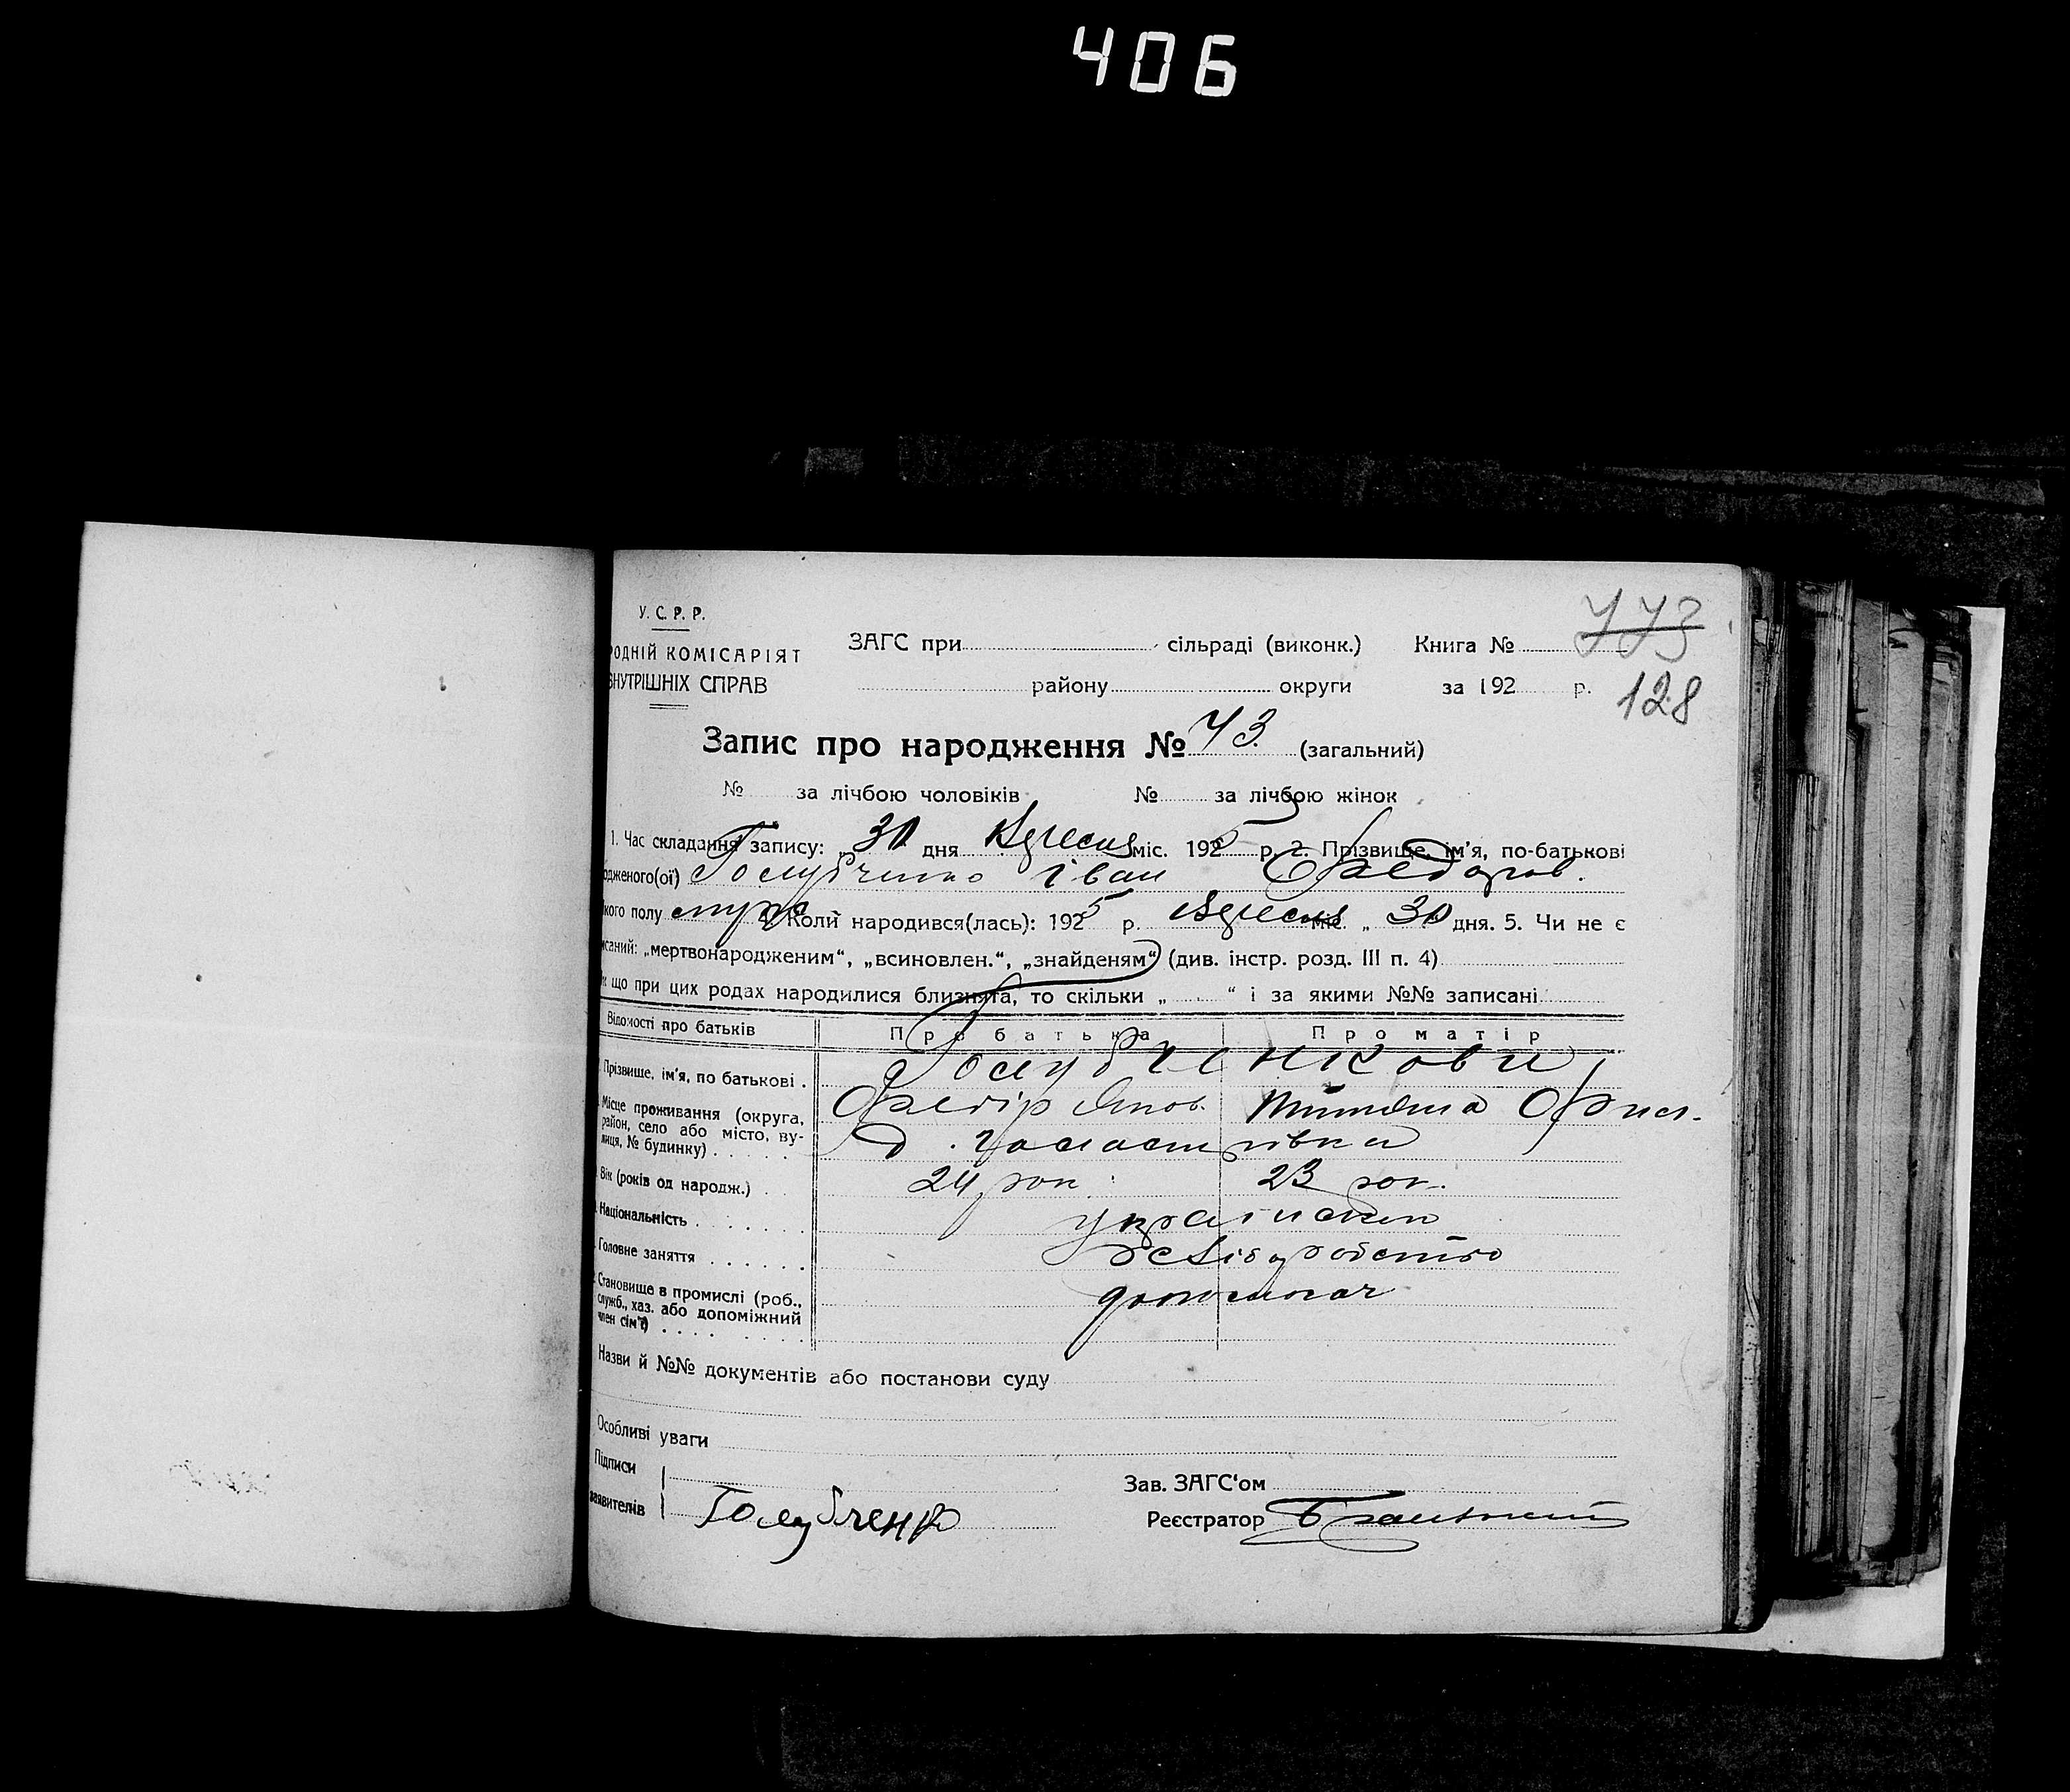 406
У. С. Р. Р.
РОДНІЙ КОМІСАРІЯТ
ВНУТРІШНІХ СПРАВ
ЗАГС при сільраді (виконк.) Книга №
району округи за 192 р.
773
128
Запис про народження № 73. (загальний)
№ за лічбою чоловіків № за лічбою жінок
1. Час складання запису: „30 дня Вересня міс. 1925 р. 2. Прізвище, ім'я, по-батькові
одженого(ої) Голубченко Іван Федоров.
кого полу муж 4. Коли народився(лась): 1925 р. Вересня міс. „ 30 дня. 5. Чи не є
исаний: „мертвонародженим“, „всиновлен.“, „знайденям“ (див. інстр. розд. III п. 4)
що при цих родах народилися близнята, то скільки „ “ і за якими №№ записані
Відомості про батьків Про батька Про матір
Прізвище, ім'я, по батькові . Голубченкови
Місце проживання (округа, район, село або місто, вулиця, № будинку) . . . . . Федір
24 рок. 23 рок.
Вік (років од народж.) . .
Національність . . . . . . . українськ
Головне заняття . . . . . . хліборобство
Становище в промислі (роб.,
служб., хаз. або допоміжний
член сім'ї) . . . . . . . .
Назви й №№ документів або постанови суду
Особливі уваги
Підписи
заявителів Голубченко
Зав. ЗАГС'ом
Реєстратор